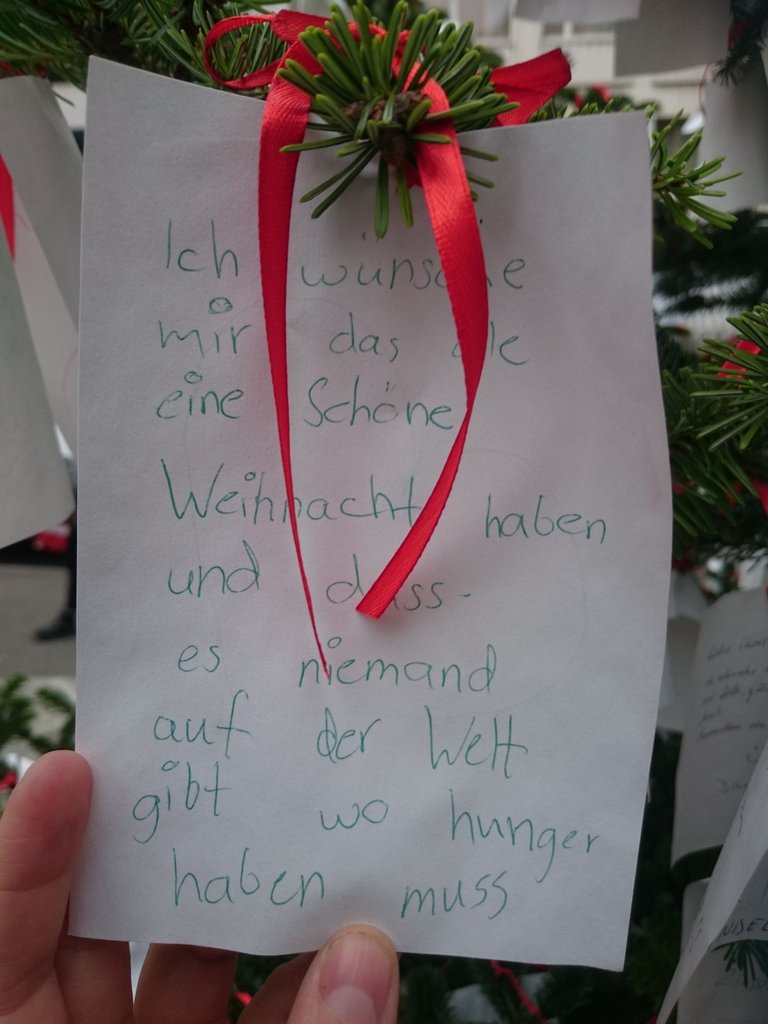 Ich wünsche
mir das alle
eine Schöne
Weihnacht haben
und dass-
es niemand
auf der Welt
gibt wo hunger
haben muss